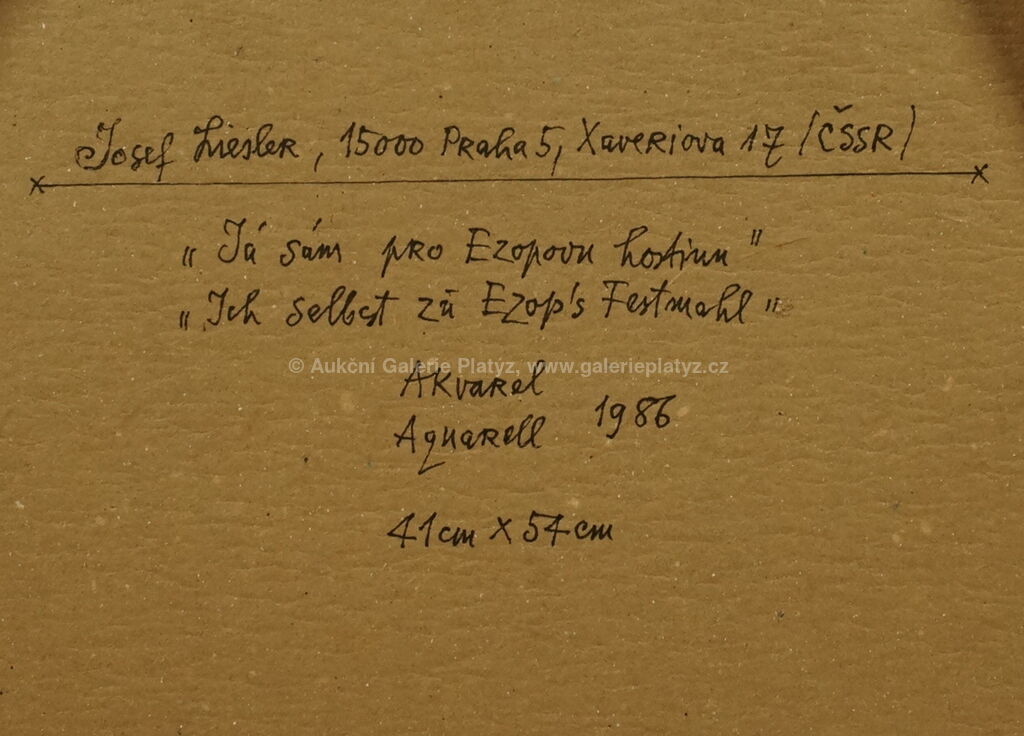 Josef Liesler, 15000 Praha 5, Xaveriova 17 /ČSSR/
„Já sám pro Ezopovu hostinu"
„Ich selbst zū Ezop's Festmahl"
© Aukční Galerie Platýz, www.galerieplatyz.cz
Akvarel
Aquarell 1986
41cm x 54cm